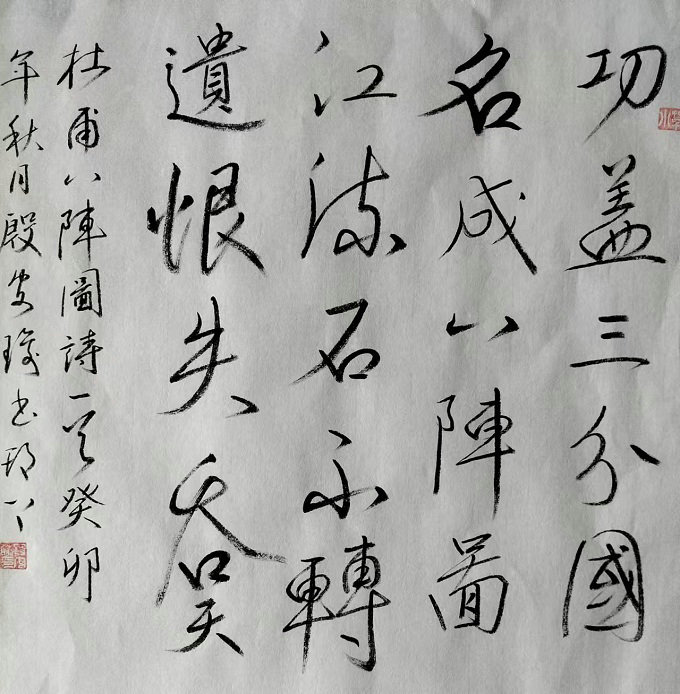 功盖三分國
名成八陣圖
江流石不轉
遺恨失吞吴
杜甫八陣圖詩一首癸卯
年秋月殷安璲书